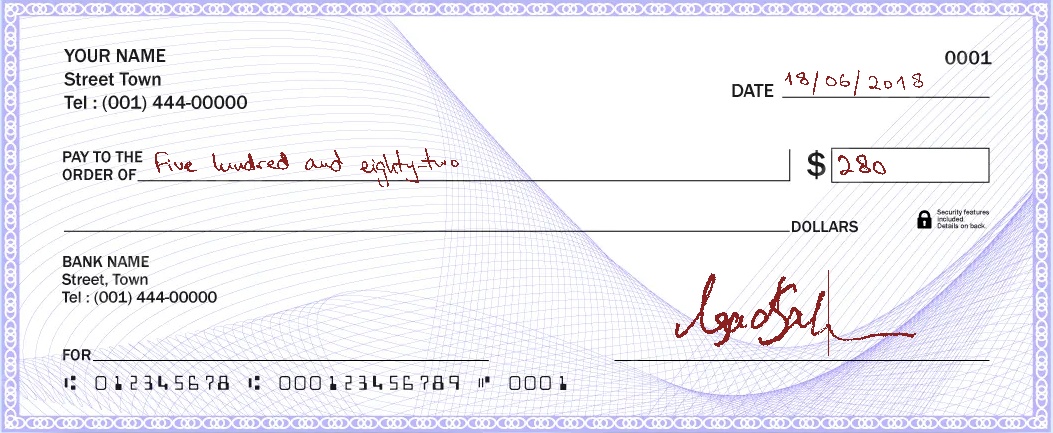 YOUR NAME
0001
Street Town
DATE 18/06/2018
Tel : (001) 444-00000
PAY TO THE ORDER OF Five hundred and eighty-two $ 280
DOLLARS
Security features
included.
Details on back.
BANK NAME
Street, Town
Tel : (001) 444-00000
FOR
012345678 000123456789 0001